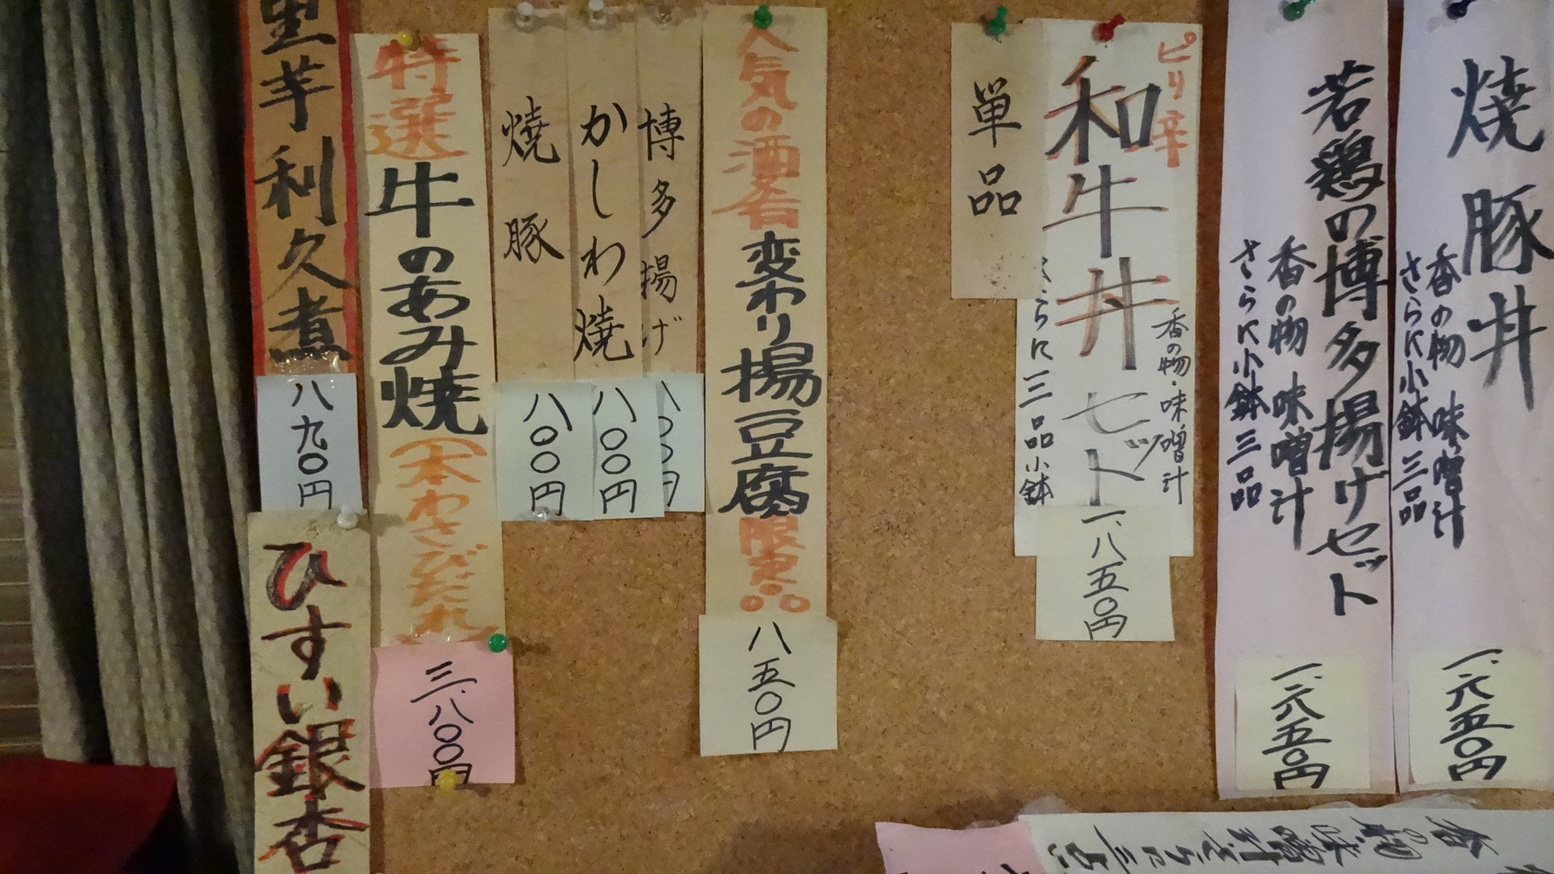 焼豚丼
香の物 味噌汁
さらに小鉢三品
一、六五〇円
若鶏の博多揚げセット
香の物 味噌汁
さらに小鉢三品
一、六五〇円
ピリ辛
和牛丼セット
香の物・味噌汁
さらに三品小鉢
一、八五〇円
単品
人気の酒肴
変わり揚豆腐
限定品
八五〇円
博多揚げ
八〇〇円
かしわ焼
八〇〇円
焼豚
八〇〇円
特選
牛のあみ焼
(本わさびだれ)
三、八〇〇円
里芋利久煮
八九〇円
ひすい銀杏
香の物 味噌汁 さらに三点